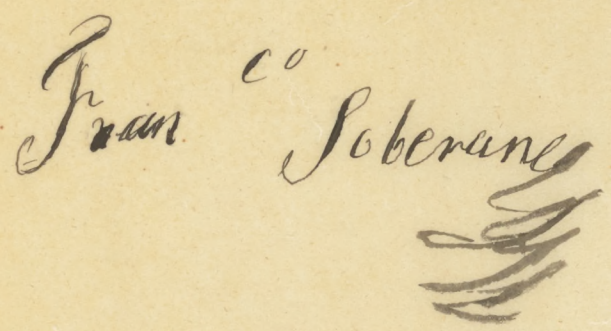 Fran co Soberanes